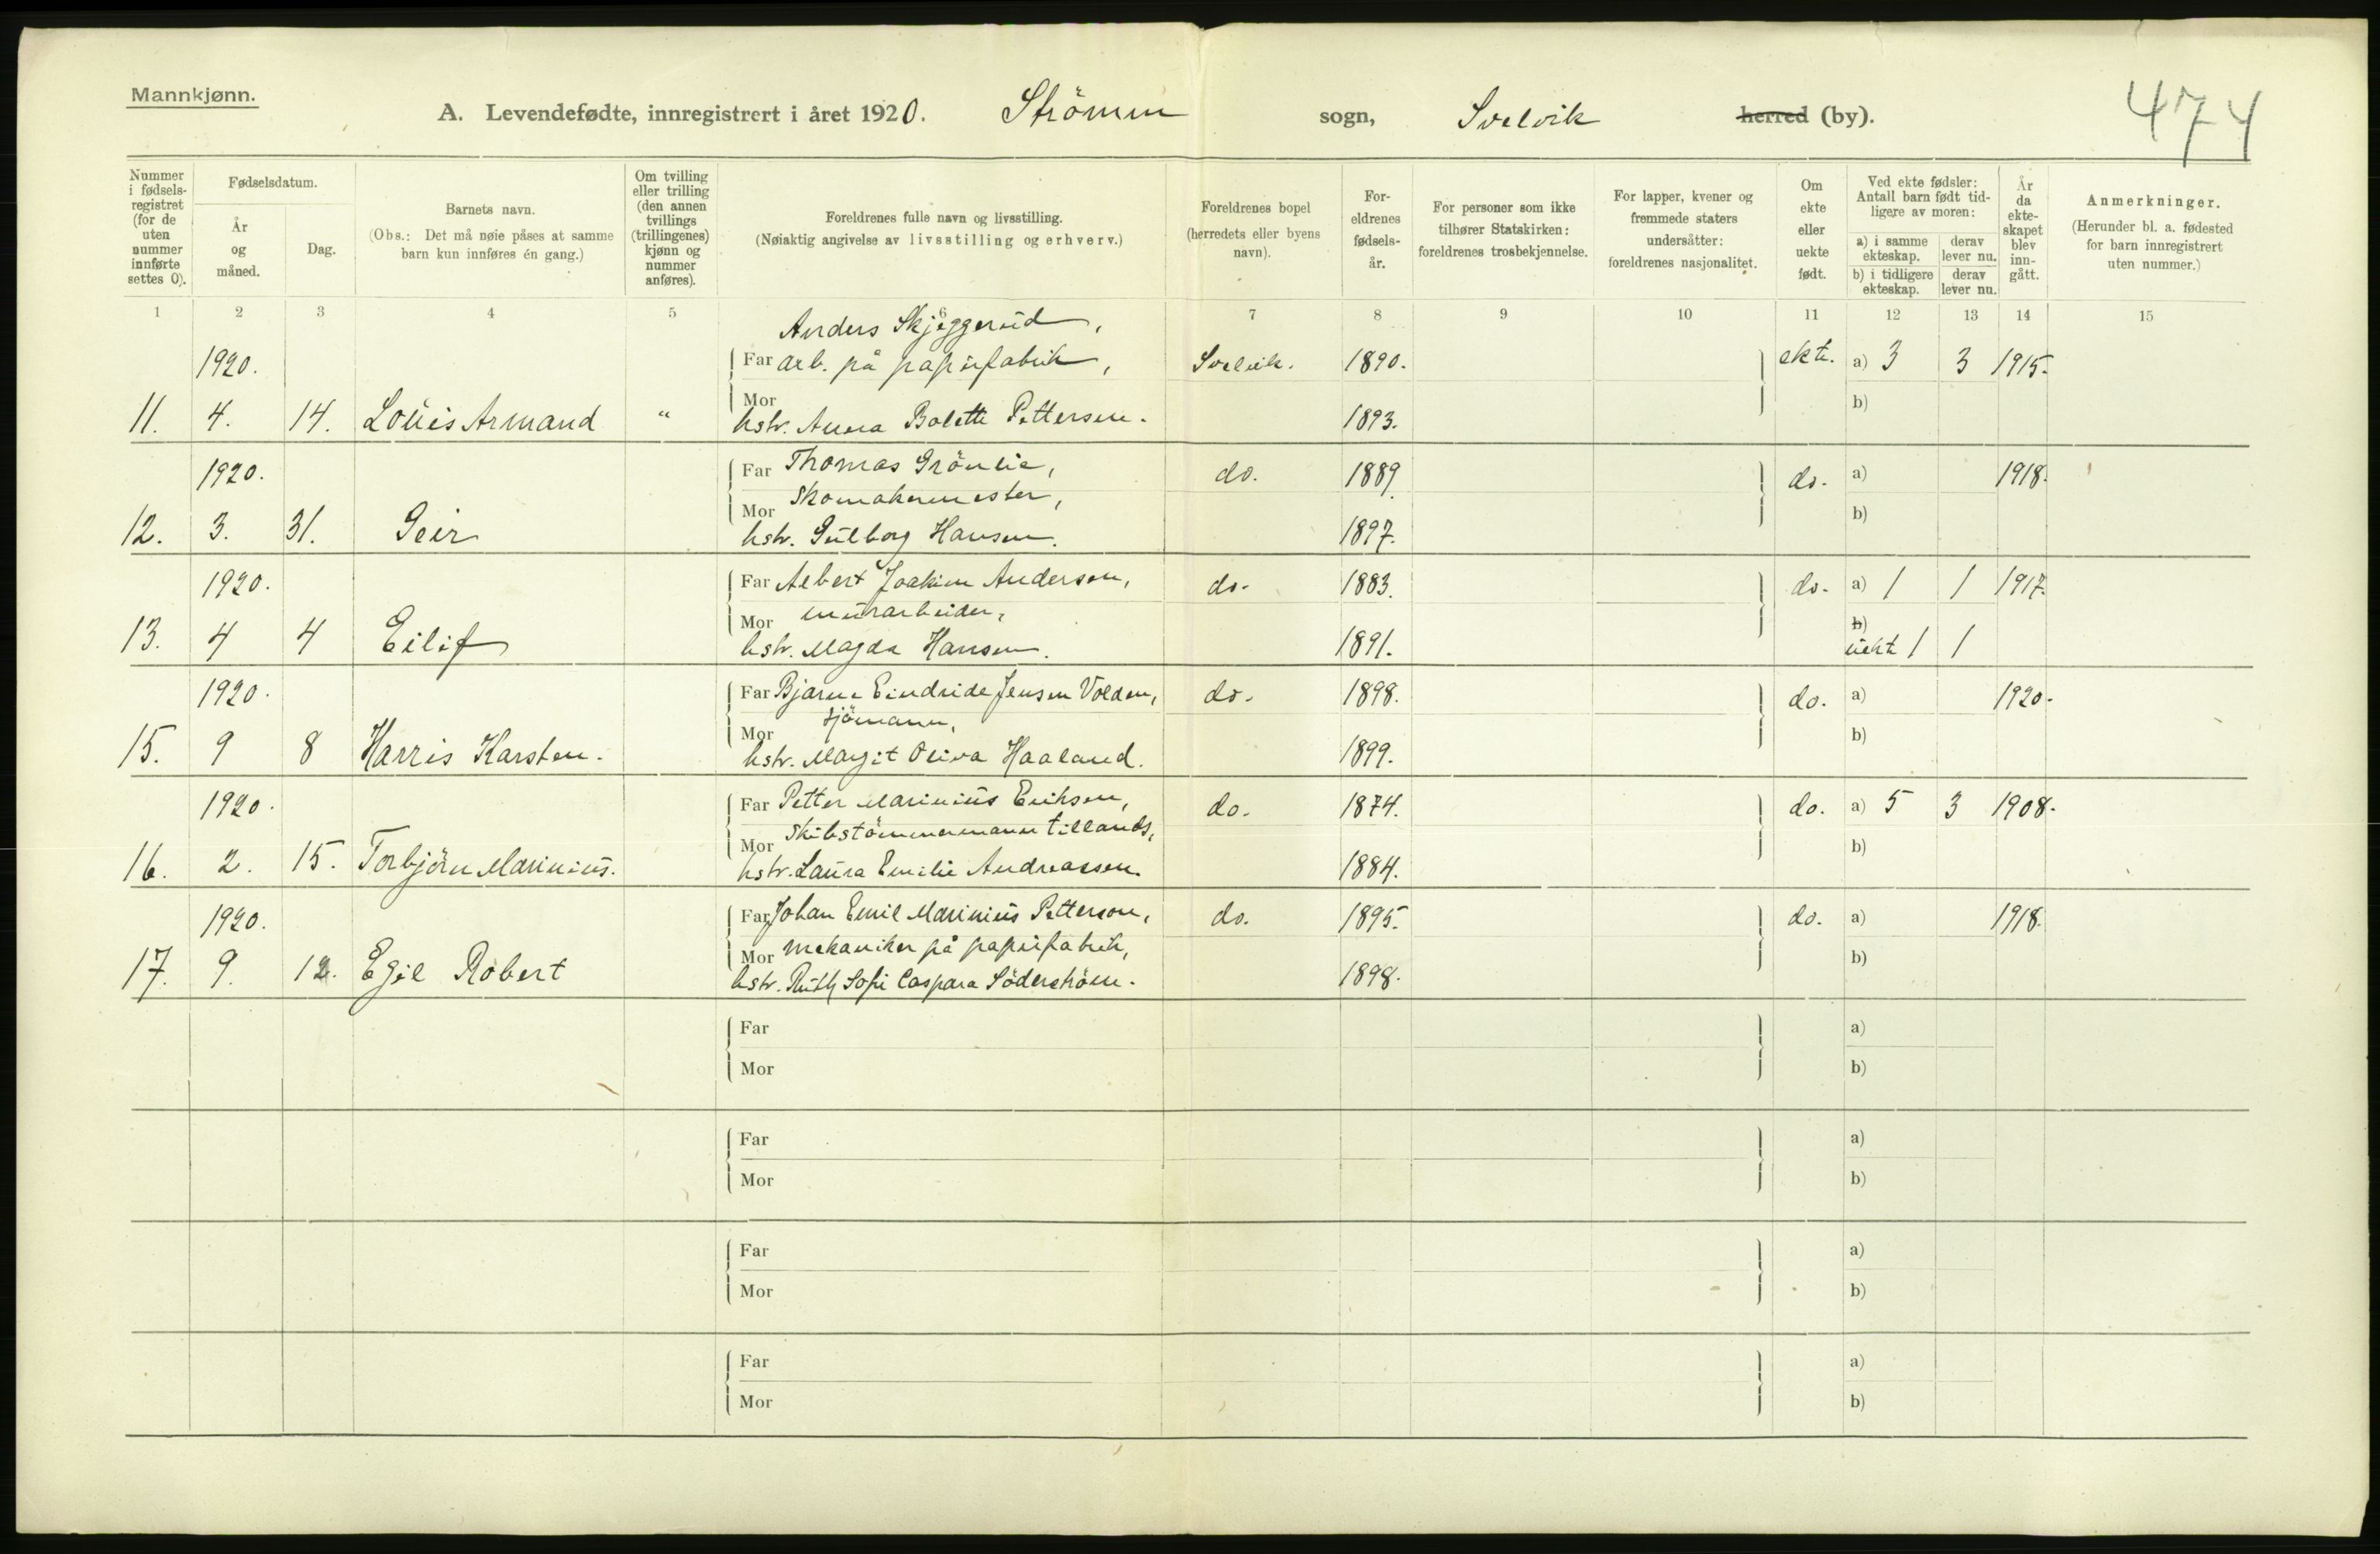 Mannkjønn.
A. Levendefødte, innregistrert i året 1920. Strömm sogn, Svelvik herred (by). 474
Nummer i fødsels-registret (for de uten nummer innførte settes 0).
Fødselsdatum.
År og måned.
Dag.
Barnets navn.
(Obs.: Det må nøie påses at samme barn kun innføres én gang.)
Om tvilling eller trilling (den annen tvillings (trillingenes) kjønn og nummer anføres).
Foreldrenes fulle navn og livsstilling.
(Nøiaktig angivelse av livsstilling og erhverv.)
Foreldrenes bopel (herredets eller byens navn).
For-eldrenes fødsels-år.
For personer som ikke tilhører Statskirken: foreldrenes trosbekjennelse.
For lapper, kvener og fremmede staters undersåtter: foreldrenes nasjonalitet.
Om ekte eller uekte født.
Ved ekte fødsler: Antall barn født tid-ligere av moren:
a) i samme ekteskap. derav lever nu.
b) i tidligere ekteskap. derav lever nu.
År da ekte-skapet blev inn-gått.
Anmerkninger.
(Herunder bl. a. fødested for barn innregistrert uten nummer.)
1 2 3 4 5 6 7 8 9 10 11 12 13 14 15
Anders Skjeggerud,
1920. Far arb. på papirfabrik, Svelvik. 1890. ekte. a) 3 3 1915.
Mor b)
11. 4. 14. Louis Armand " hstr. Anna Bolette Pettersen. 1893.
1920. Far Thomas Grönlie, do. 1889. do. a) 1918.
Mor Skomakermester, b)
12. 3. 31. Geir hstr. Gulborg Hansen. 1897.
1920. Far Albert Joakim Andersen, do. 1883. do. a) 1 1 1917.
Mor murarbeider, b)
13. 4 4 Eilif hstr. Magda Hansen. 1891. uekte 1 1
1920. Far Bjarne Eindride Jensen Volden, do. 1898. do. a) 1920.
Mor sjömann, b)
15. 9 8 Harris Karsten. hstr. Margit Oliva Haaland. 1899.
1920. Far Petter Marinius Eriksen, do. 1874. do. a) 5 3 1908.
Mor Skibstömmermann tillands, b)
16. 2. 15. Torbjörn Marinius. hstr. Laura Emilie Andreassen. 1884.
1920. Far Johan Emil Marinius Petterson, do. 1895. do. a) 1918.
Mor mekaniker på papirfabrik, b)
17. 9. 12. Egil Robert hstr. Ruth Sofie Caspara Söderström. 1898.
Far a)
Mor b)
Far a)
Mor b)
Far a)
Mor b)
Far a)
Mor b)